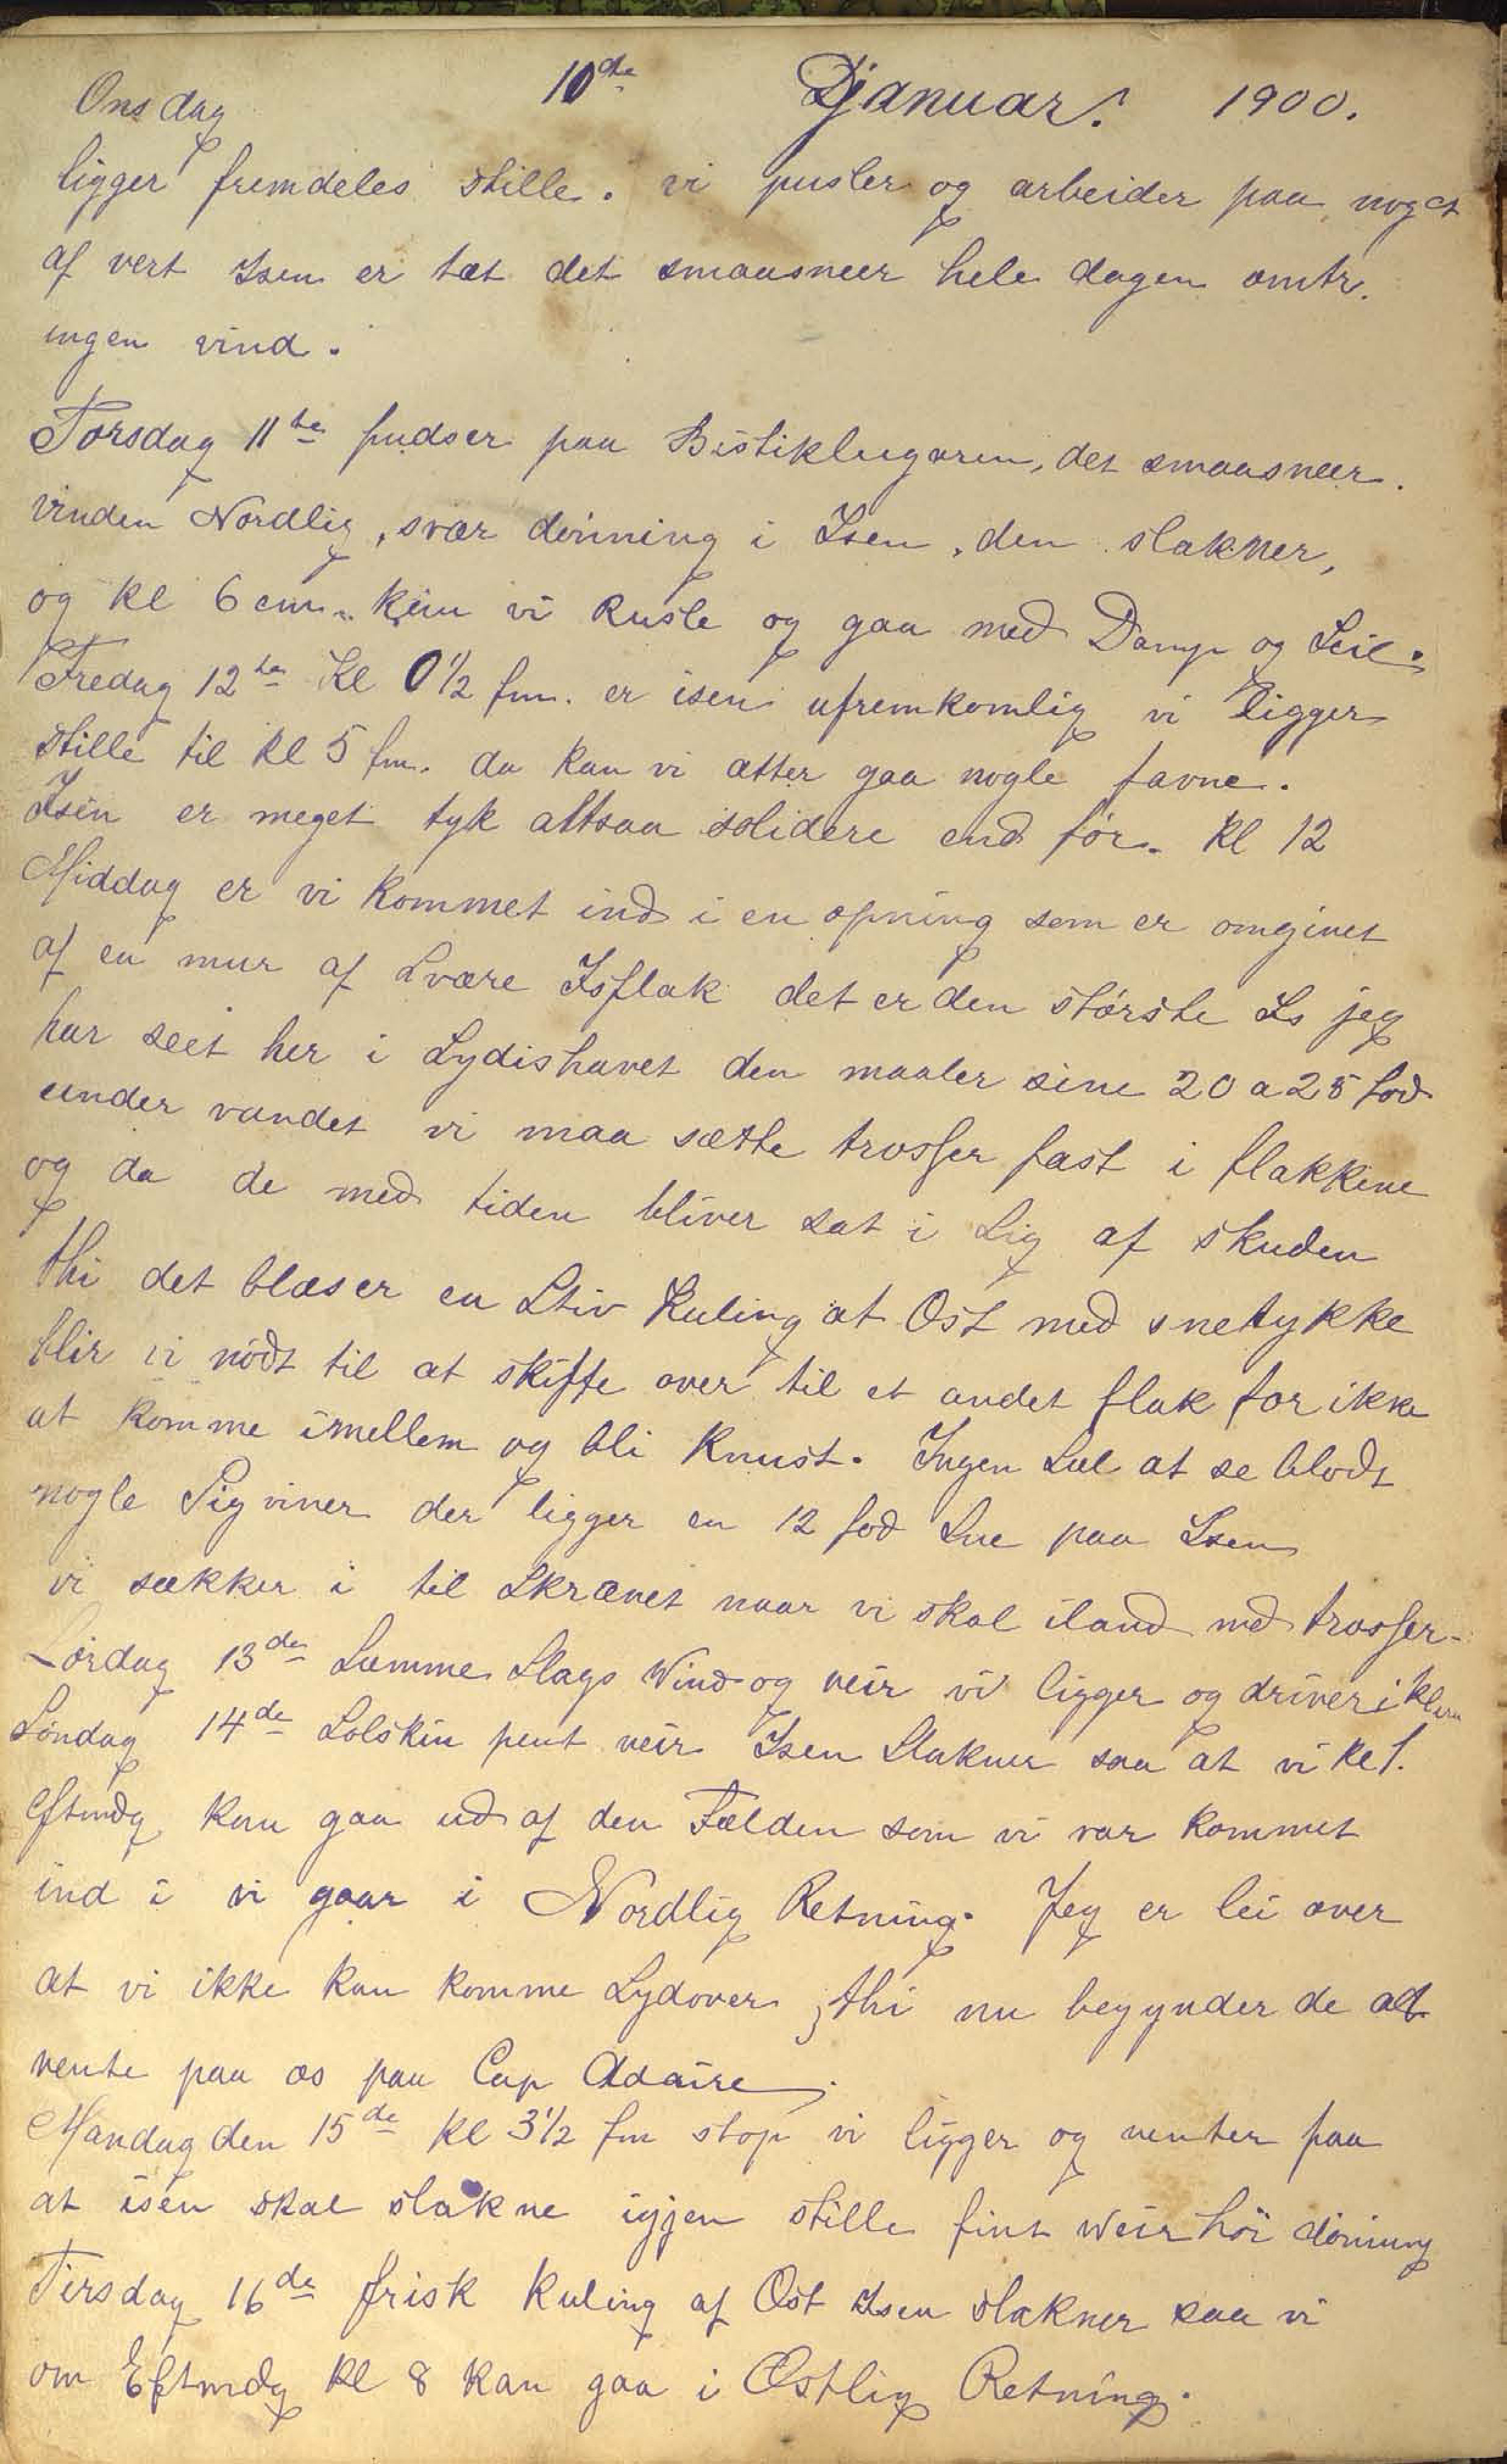 Onsdag 10de Djanuar. 1900.
ligger fremdeles stille. vi pusler og arbeider paa noget
af vert Isen er tæt det smaasneer hele dagen omtr.
ingen vind.
Torsdag 11te pudser paa Bestiklugaren, det smaasneer.
vinden Nordlig, svær dønning i Isen, den slakner,
og kl 6 em. kan vi Rusle og gaa med Damp og Seil.
Fredag 12te Kl 0½ fm. er isen ufremkomlig vi ligger
stille til kl 5 fm. da kan vi atter gaa nogle favne.
Isen er meget tyk altsaa solidere end før. Kl 12
Middag er vi kommet ind i en opning som er omgivet
af en mur af Svære Isflak det er den største Is jeg
har seet her i Sydishavet den maaler sine 20 a 25 fod
under vandet vi maa sætte trosser fast i flakkene
og da de med tiden bliver sat i Sig af skuden
thi det blæser en Stiv Kuling at Ost med snetykke
blir vi nødt til at skifte over til et andet flak for ikke
at komme imellem og bli Knust. Ingen Sæl at se blodt
nogle Pigviner der ligger en 12 fod Sne paa Isen
vi sækker i til Skrævet naar vi skal iland med trosser-
Lørdag 13de Samme Slags Wind og veir vi ligger og driver i
Søndag 14de Solskin pent veir Isen Slakner saa at vi kl 1.
Eftmdg kan gaa ud af den Fælden som vi var kommet
ind i vi gaar i Nordlig Retning. Jeg er lei over
at vi ikke kan komme Sydover, thi nu begynder de at
vente paa os paa Cap Adaire.
Mandag den 15de Kl 3½ fm stop vi ligger og venter paa
at isen skal slakne igjen stille fint Weir høi dønning
Tirsdag 16de frisk Kuling af Ost Isen slakner saa vi
om Eftmdg kl 8 kan gaa i Østlig Retning.